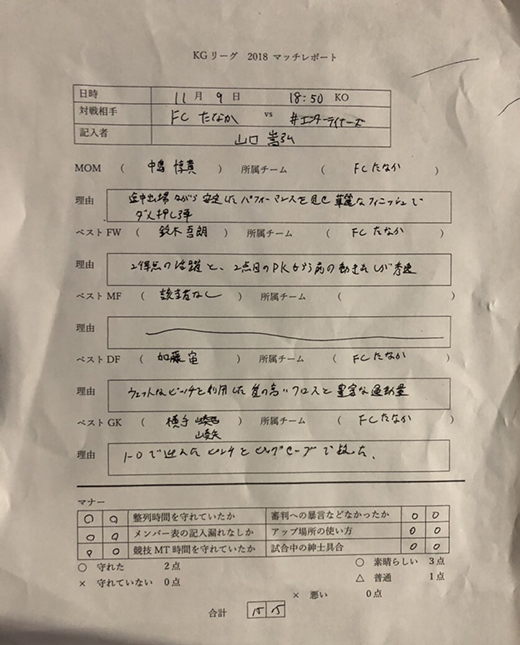 KGリーグ 2018 マッチレポート
日時 11月 9日 18:50 KO
対戦相手 FC たなか vs #エンターテイナーズ
記入者 山口
MOM ( 中島 ) 所属チーム ( FC たなか )
理由 途中出場ながら安定したパフォーマンスを見せ華麗なフィニッシュで
ダメ押し弾
ベスト FW ( 鈴木 吾朗 ) 所属チーム ( FC たなか )
理由 2得点の活躍と、2点目のPKをもらう前の動き出しが秀逸
ベスト MF ( 該当者なし ) 所属チーム (
理由
ベスト DF ( 加藤 ) 所属チーム ( FC たなか )
理由 ウェットなピッチを利用した質の高いクロスと豊富な運動量
ベスト GK ( 横手 ) 所属チーム ( FC たなか )
理由 1-0で迎えたピンチをビッグセーブで救った。
マナー
○ ○ 整列時間を守れていたか 審判への暴言などなかったか ○ ○
○ ○ メンバー表の記入漏れなしか アップ場所の使い方 ○ ○
○ ○ 競技 MT 時間を守れていたか 試合中の紳士具合 ○ ○
○ 守れた 2点 ○ 素晴らしい 3点
× 守れていない 0点 △ 普通 1点
× 悪い 0点
合計 15 15